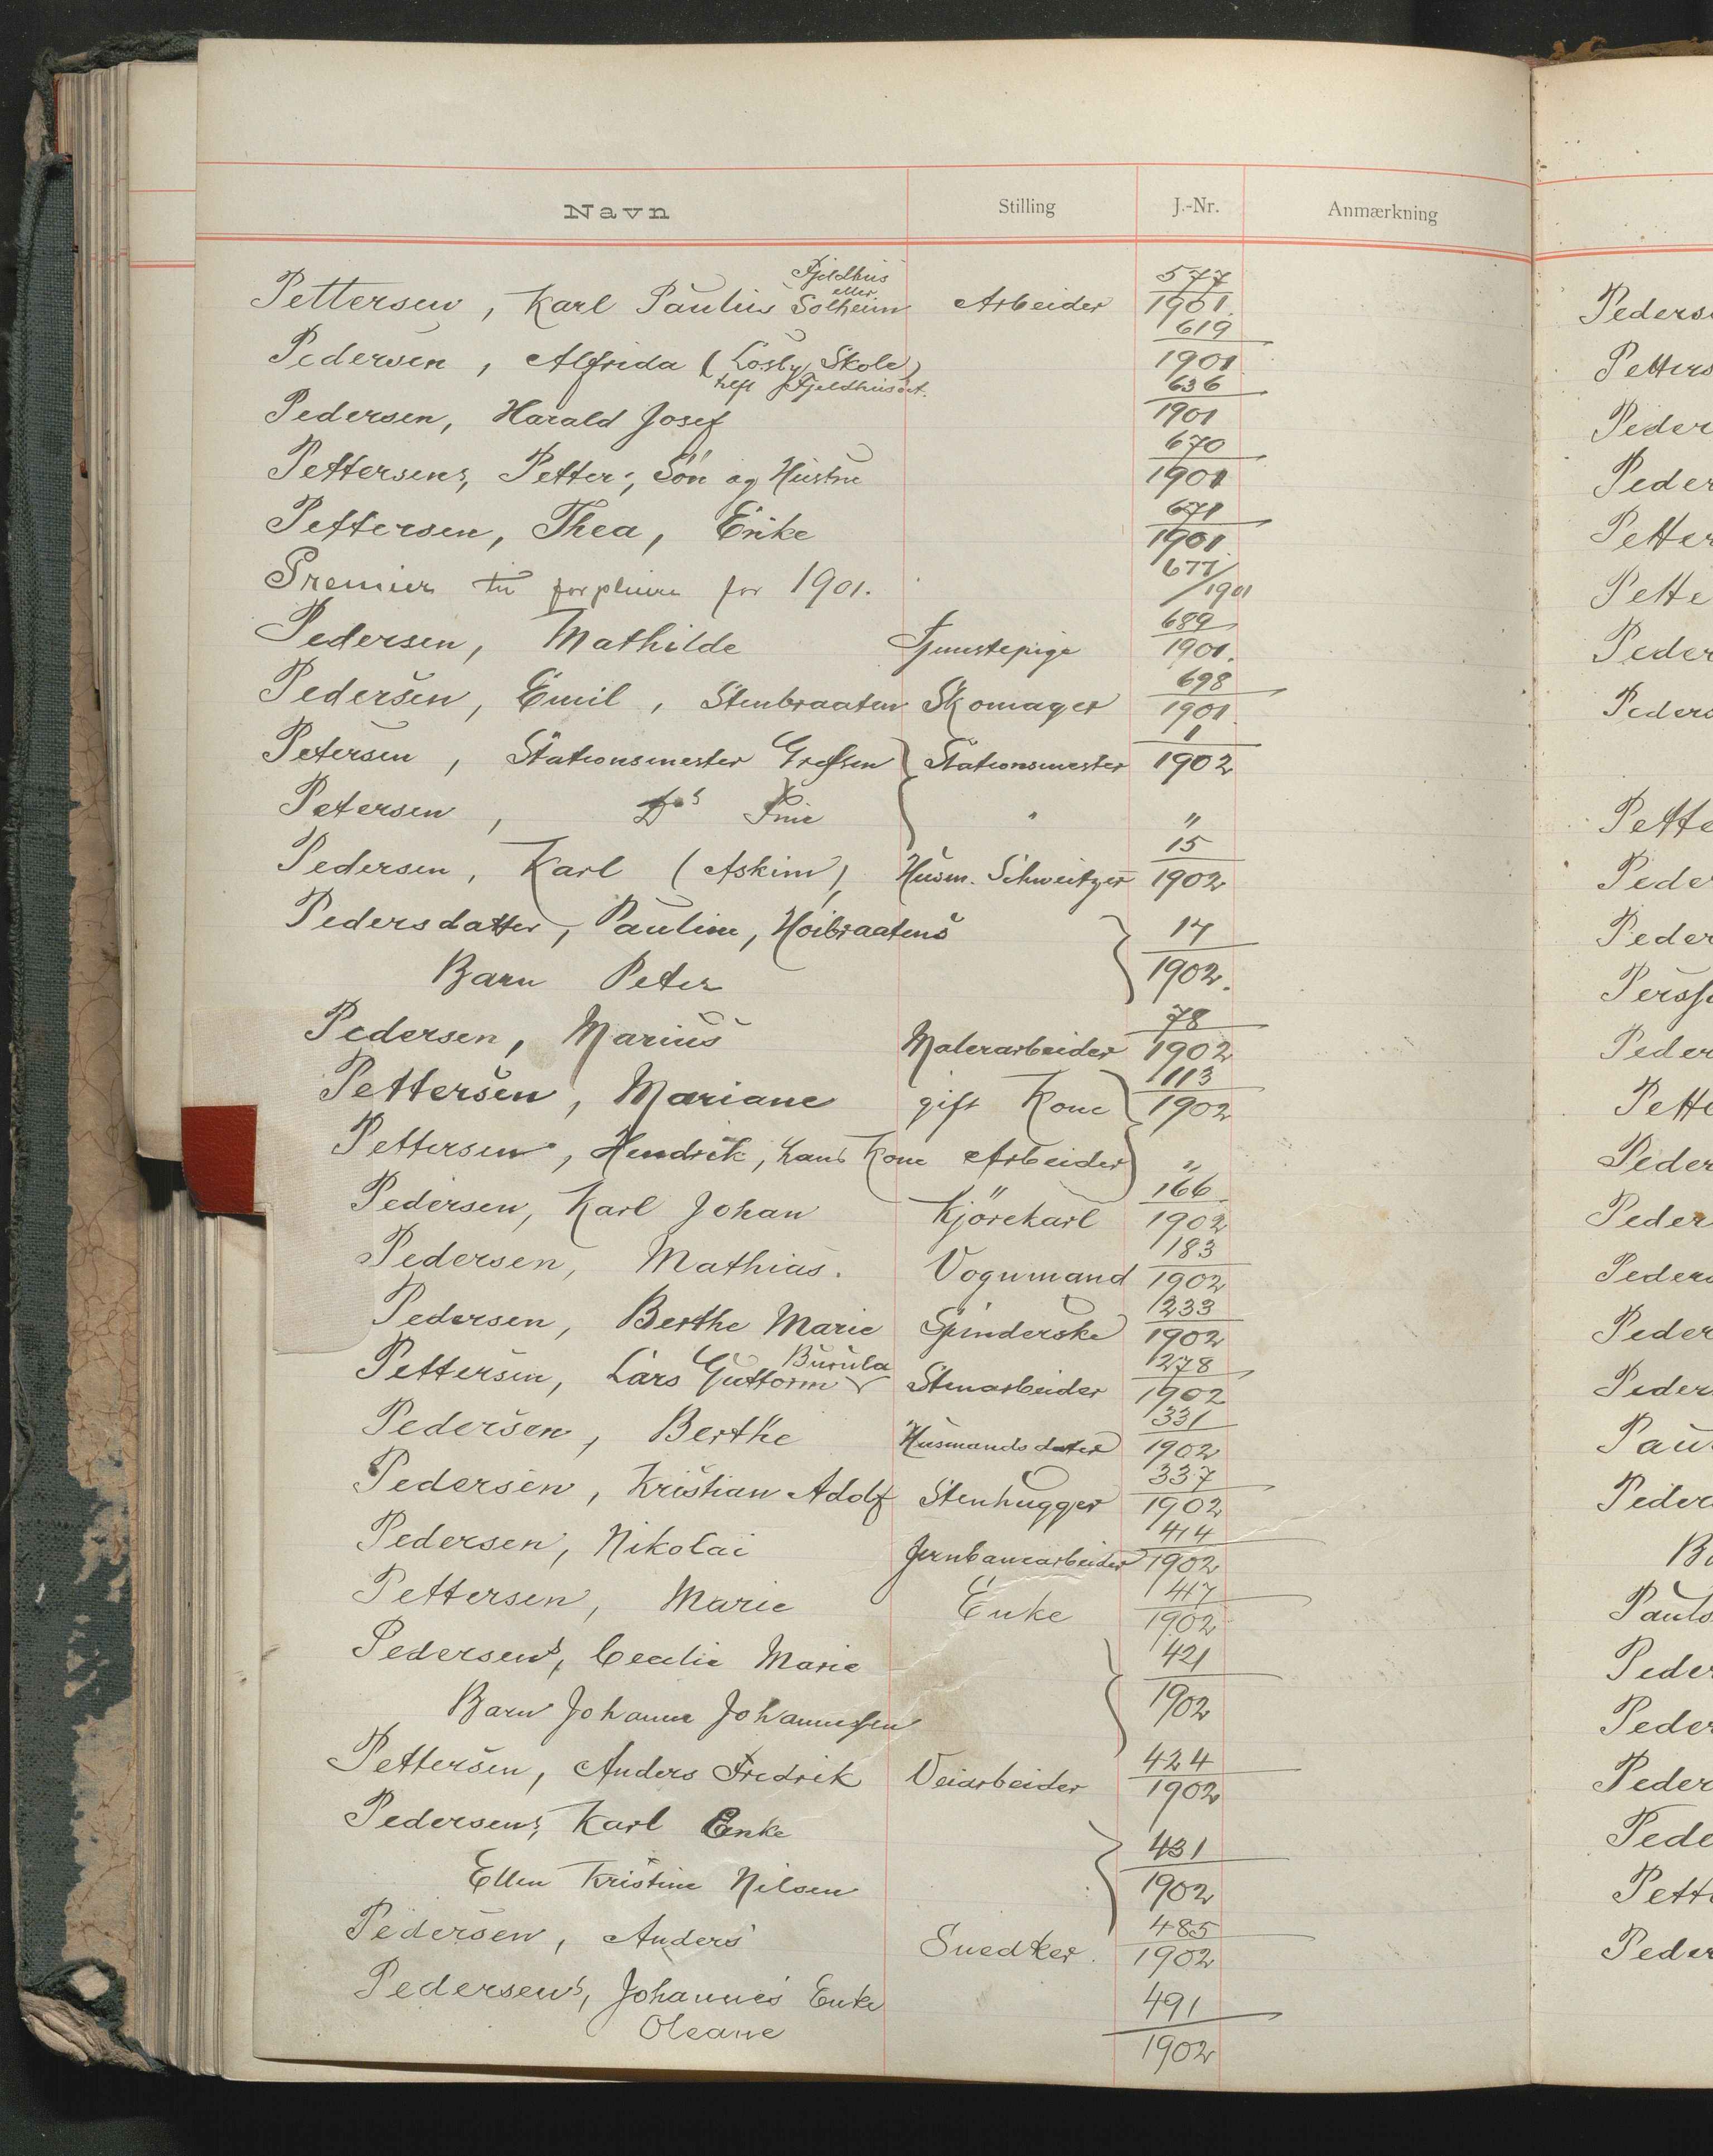 Navn Stilling J.-Nr. Anmærkning
Fjeldhus
eller
Pettersen, Karl Paulius Solheim Arbeider 577/1901
Pedersen, Alfrida (Losby Skole) 619/1901
helst Fjeldhus
Pedersen, Harald Josef 636/1901
Pettersens, Petter, Søn og Hustru 670/1901
Pettersen, Thea, Enke 671/1901
Premier til forpleiere for 1901. 677/1901
Pedersen, Mathilde Tjenestepige 689/1901.
Pedersen, Emil, Stenbraaten Skomager 698/1901
Petersen, Stationsmester Grefsen Stationsmester 1/1902
Petersen, Do's Frue " "
Pedersen, Karl (Askim), Husm. Schweitzer 15/1902
Pedersdatter, Pauline, Høibraatens
Barn Peter 17/1902.
Pedersen, Marius Malerarbeider 78/1902
Pettersen, Mariane gift Kone 113/1902
Pettersen, Hendrik, hans Kone Arbeider "
Pedersen, Karl Johan Kjørekarl 166/1902
Pedersen, Mathias. Vognmand 183/1902
Pedersen, Berthe Marie Spinderske 233/1902
Burula
Pettersen, Lars Guttorm Stenarbeider 278/1902
Pedersen, Berthe Husmandsdater 331/1902
Pedersen, Kristian Adolf Stenhugger 337/1902
Pedersen, Nikolai Jernbanearbeider 414/1902
Pettersen, Marie Enke 417/1902
Pedersens, Cecilie Marie
Barn Johanne Johannessen 421/1902
Pettersen, Anders Fredrik Veiarbeider 424/1902
Pedersens, Karl Enke
Ellen Kristine Nilsen 431/1902
Pedersen, Anders Snedker. 485/1902
Pedersens, Johannes Enke
Oleane 491/1902